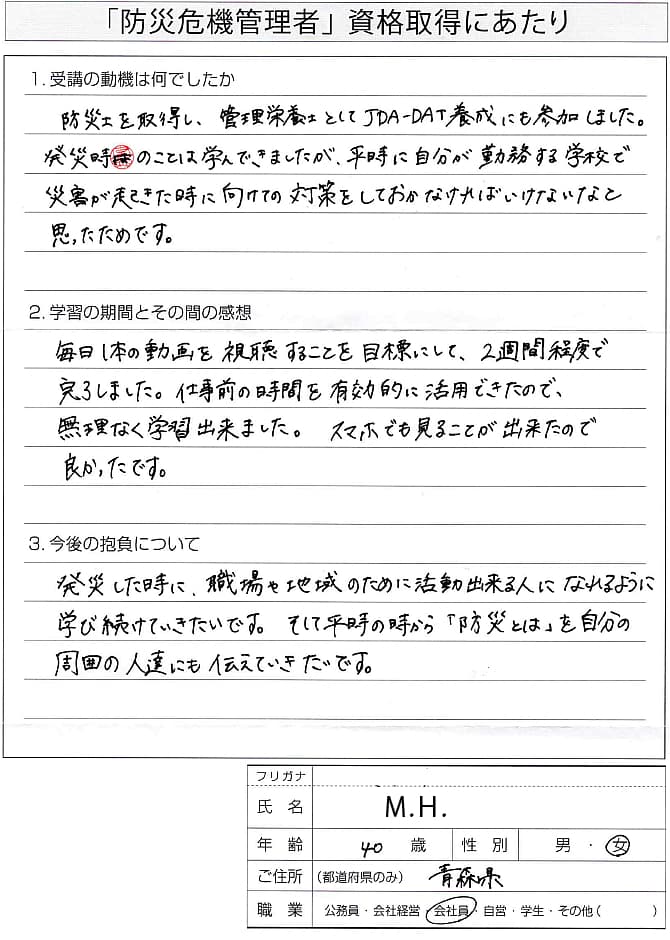 「防災危機管理者」資格取得にあたり
1. 受講の動機は何でしたか
防災士を取得し、管理栄養士としてJDA-DAT養成にも参加しました。
発災時のことは学んできましたが、平時に自分が勤務する学校で
災害が起きた時に向けての対策をしておかなければいけないなと
思ったためです。
2. 学習の期間とその間の感想
毎日1本の動画を視聴することを目標にして、2週間程度で
完了しました。仕事前の時間を有効的に活用できたので、
無理なく学習出来ました。 スマホでも見ることが出来たので
良かったです。
3. 今後の抱負について
発災した時に、職場や地域のために活動出来る人になれるように
学び続けていきたいです。そして平時の時から「防災とは」を自分の
周囲の人達にも伝えていきたいです。
フリガナ
氏 名 M.H.
年 齢 40 歳 性 別 男 ・ 女
ご住所 (都道府県のみ) 青森県
職 業 公務員・会社経営・会社員・自営・学生・その他 ( )